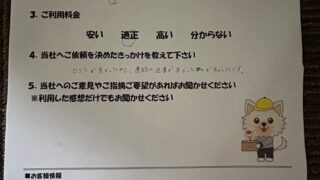 3. ご利用料金
安い 適正 高い 分からない
4. 当社へご依頼を決めたきっかけを教えて下さい
口コミが良かったので、
5. 当社へのご意見やご指摘ご要望があればお聞かせください
※利用した感想だけでもお聞かせください
■お客様情報